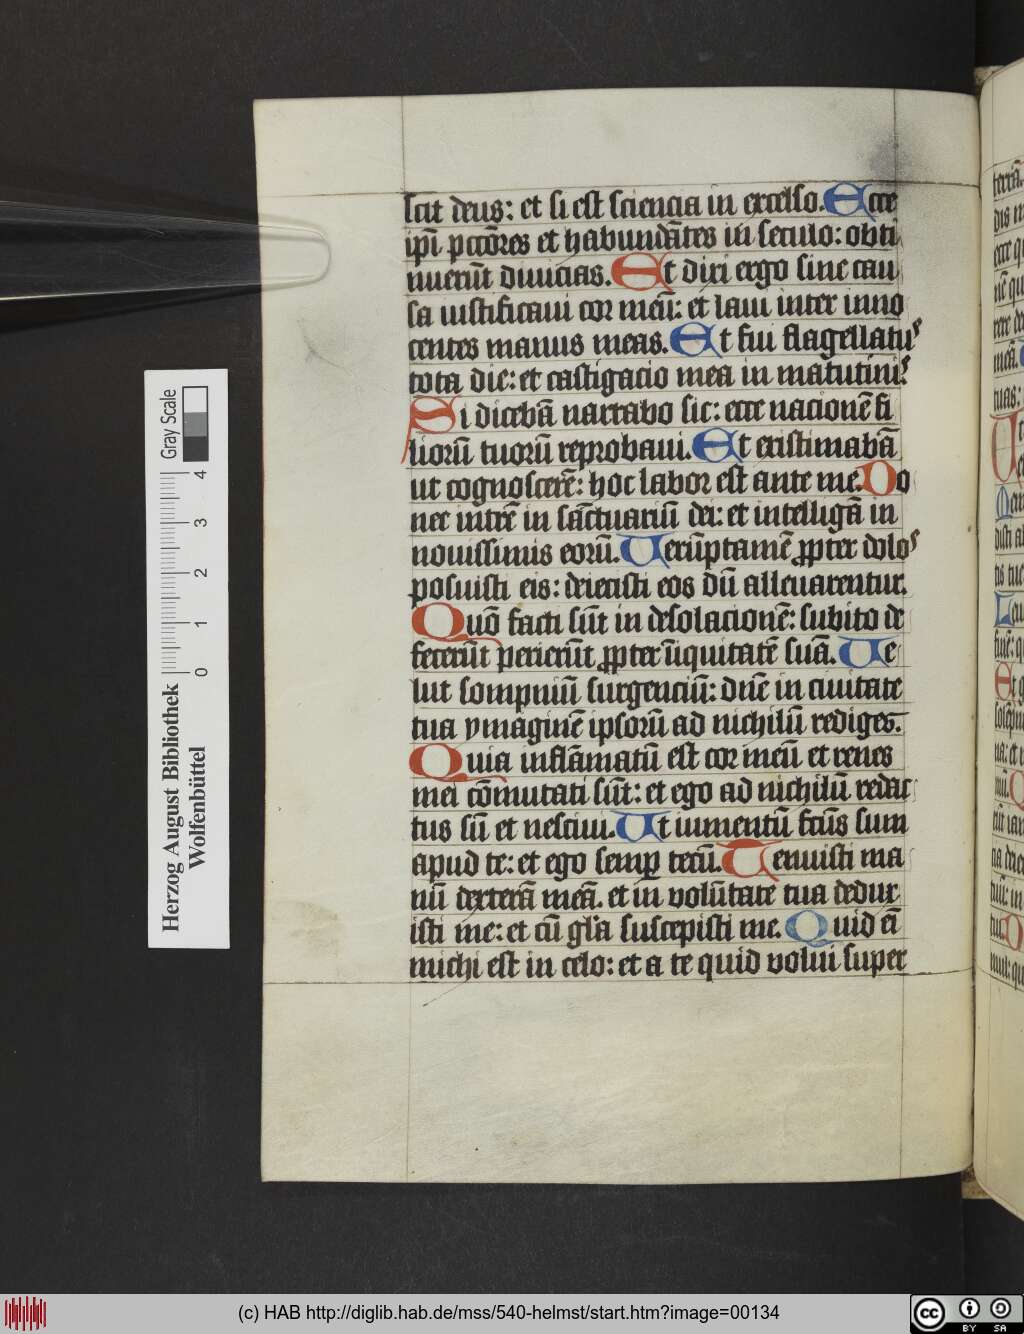 scit deus: et si est sciencia in excelso. Ecce
ipi pctores et habundātes in seculo: obti
nuerūt diuicias. Et dixi ergo sine cau
sa iustificaui cor meū: et laui inter inno
centes manus meas. Et fui flagellatus
tota die: et castigacio mea in matutinis.
Si dicebā narrabo sic: ecce nacionē fi
liorū tuorū reprobaui. Et existimabā
ut cognoscerē: hoc labor est ante me. Do
nec intrē in sāctuariū dei: et intelligā in
nouissimis eorū. Uerūptamē ꝓpter dolos
posuisti eis: deiecisti eos dū alleuarentur.
Quō facti sūt in desolacionē: subito de
fecerūt perierūt ꝓpter iniquitatē suā. Ue
lut sompniū surgenciū: dne in ciuitate
tua ymaginē ipsorū ad nichilū rediges.
Quia inflāmatū est cor meū et renes
mei cōmutati sūt: et ego ad nichilū redac
tus sū et nesciui. Ut iumentū fctūs sum
apud te: et ego semꝑ tecū. Tenuisti ma
nū dexterā meā. et in volūtate tua dedux
isti me: et cū gl'a suscepisti me. Quid eī
michi est in celo: et a te quid volui super
Herzog August Bibliothek
Wolfenbüttel
Gray Scale
0 1 2 3 4
(c) HAB http://diglib.hab.de/mss/540-helmst/start.htm?image=00134
cc BY SA